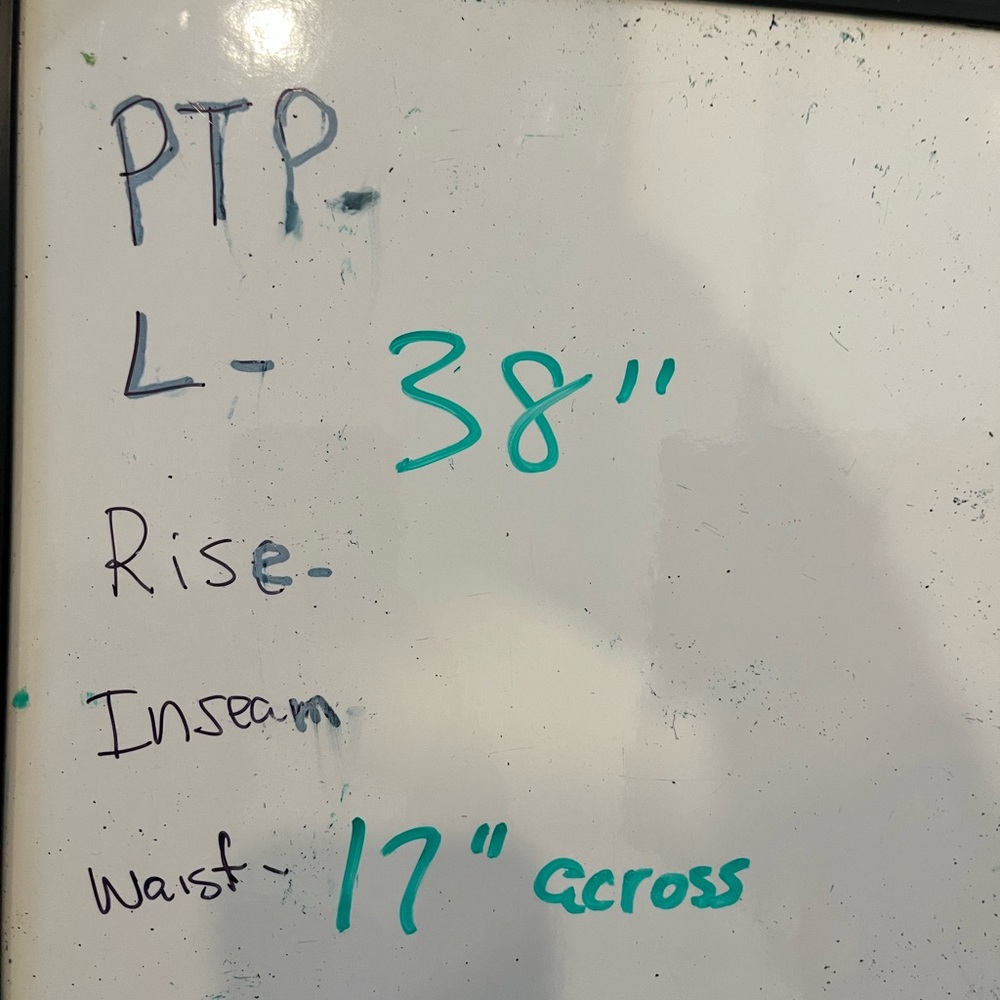 PTP-
L - 38"
Rise-
Inseam-
Waist- 17" across